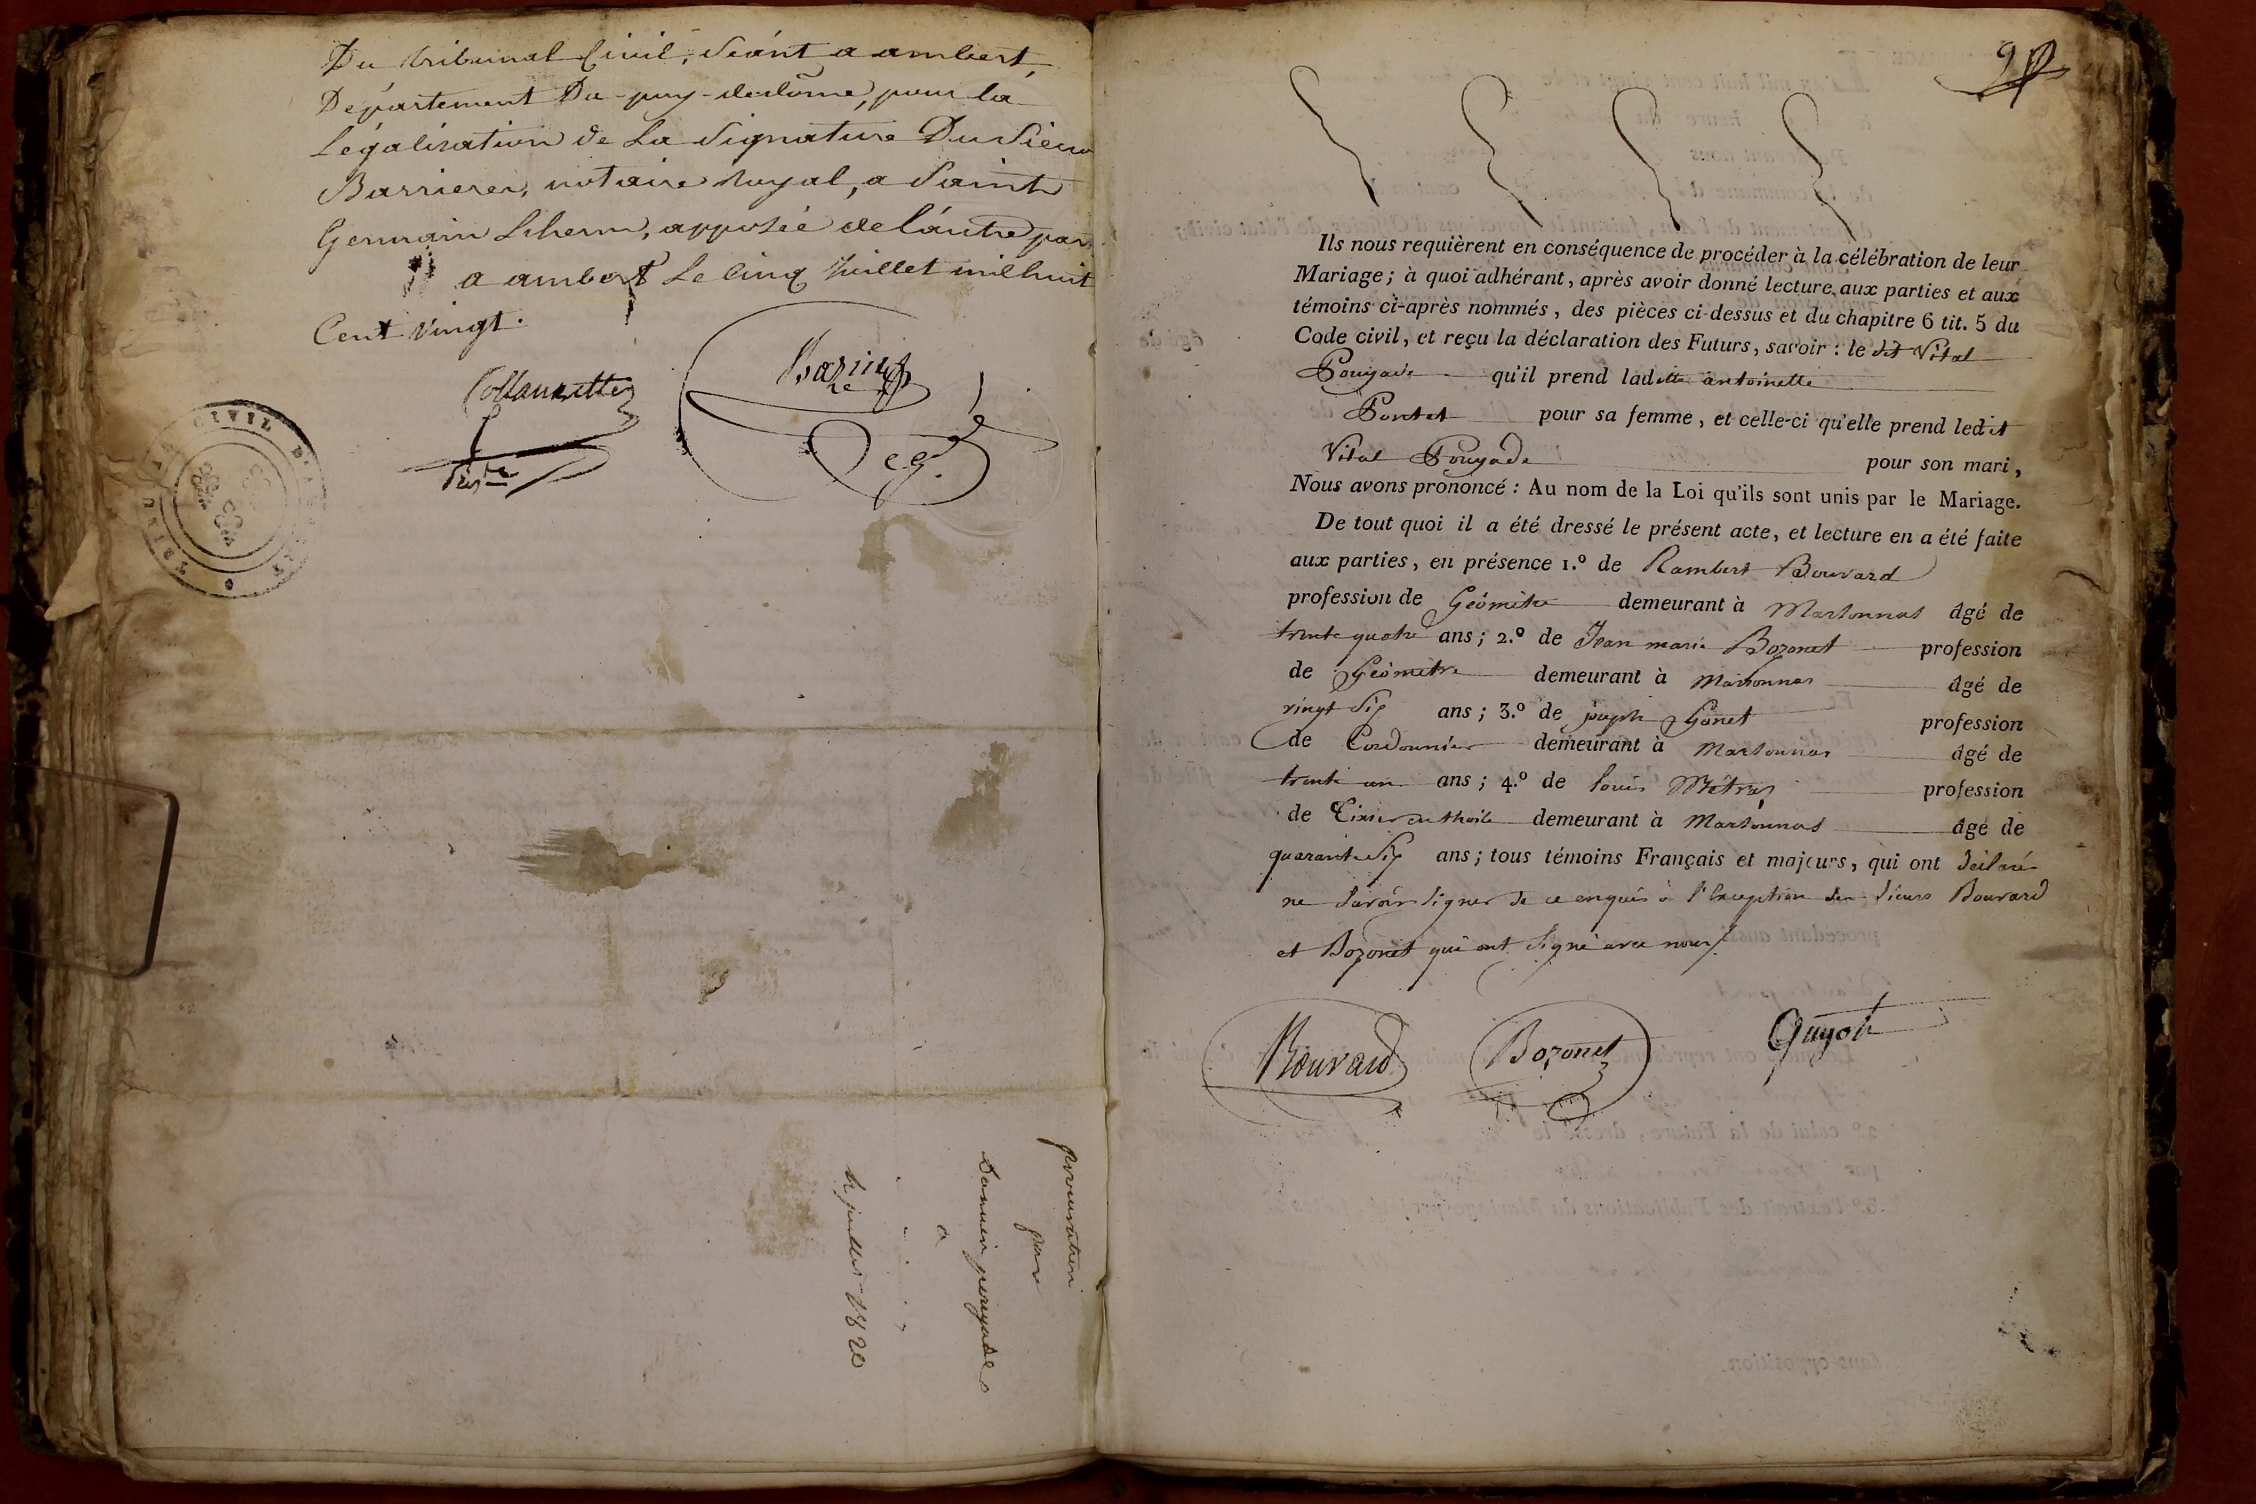 Du tribunal Civil, Séant a ambert,
Département Du-puy-dedôme, pour la
Légalisation de La Signature Du Sieur
Barrierer, notaire Royal, a Saint
Germain Lherm, apposée de l'autre part
a ambert Le Cinq Juillet mil huit
Cent vingt.
Collangettes
CIVIL D'AMBERT
procuration
par
pouyade
a
juillet 1820
Ils nous requièrent en conséquence de procéder à la célébration de leur
Mariage; à quoi adhérant, après avoir donné lecture aux parties et aux
témoins ci-après nommés, des pièces ci-dessus et du chapitre 6 tit. 5 du
Code civil, et reçu la déclaration des Futurs, savoir : le dit Vital
Pouyade qu'il prend ladite antoinette
Pontet pour sa femme, et celle-ci qu'elle prend ledit
Vital Pouyade pour son mari,
Nous avons prononcé : Au nom de la Loi qu'ils sont unis par le Mariage.
De tout quoi il a été dressé le présent acte, et lecture en a été faite
aux parties, en présence 1.º de Rambert Bouvard
profession de Géomètre demeurant à Marsonnas âgé de
trente quatre ans; 2.º de Jean marie Bozonet profession
de Géomètre demeurant à Marsonnas âgé de
vingt Six ans; 3.º de joseph Gonet profession
de Cordonnier demeurant à Marsonnas âgé de
trente un ans; 4.º de louis Métras profession
de Tixier en thoile demeurant à Marsonnas âgé de
quarante Six ans; tous témoins Français et majeurs, qui ont déclaré
ne Savoir Signer de ce enquis à l'Exception des Sieurs Bouvard
et Bozonet qui ont Signé avec nous.
Bouvard Bozonet Guyot